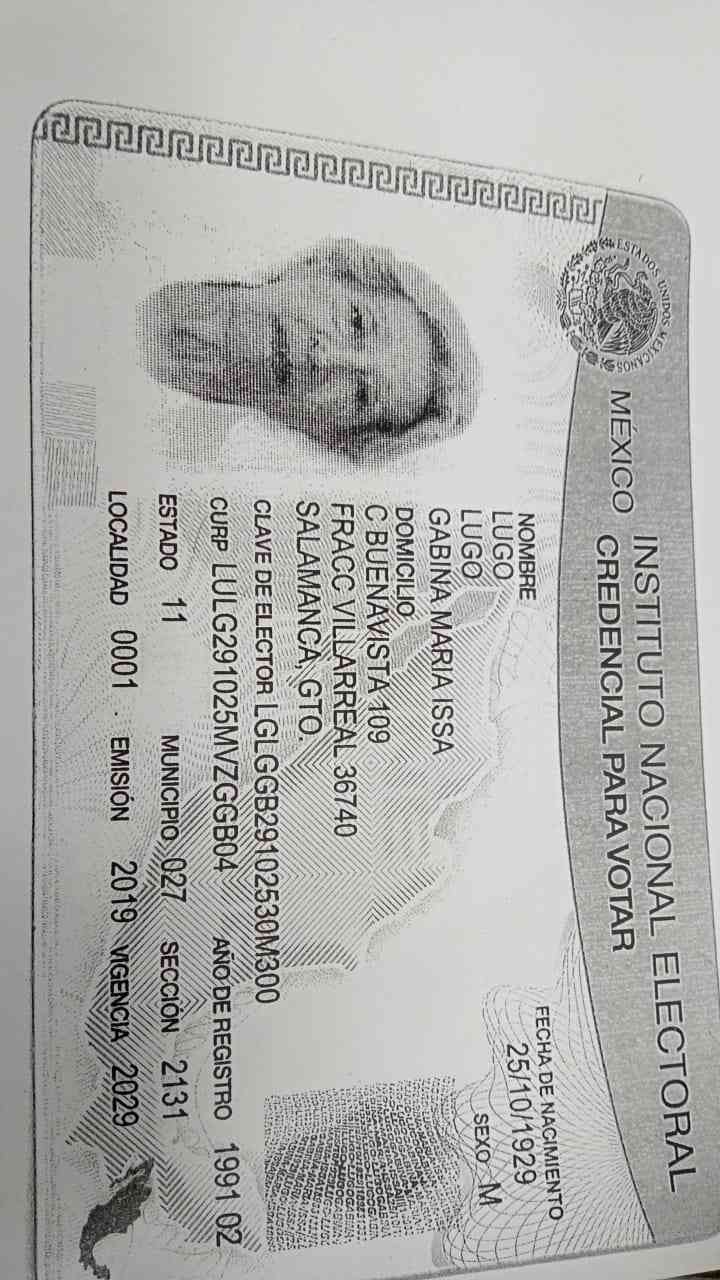 ESTADOS UNIDOS MEXICANOS
MÉXICO INSTITUTO NACIONAL ELECTORAL
CREDENCIAL PARA VOTAR
NOMBRE
LUGO
LUGO
GABINA MARIA ISSA
FECHA DE NACIMIENTO
25/10/1929
SEXO M
DOMICILIO
C BUENAVISTA 109
FRACC VILLARREAL 36740
SALAMANCA, GTO.
CLAVE DE ELECTOR LGLGGB29102530M300
CURP LULG291025MVZGGB04 AÑO DE REGISTRO 1991 02
ESTADO 11 MUNICIPIO 027 SECCIÓN 2131
LOCALIDAD 0001 EMISIÓN 2019 VIGENCIA 2029